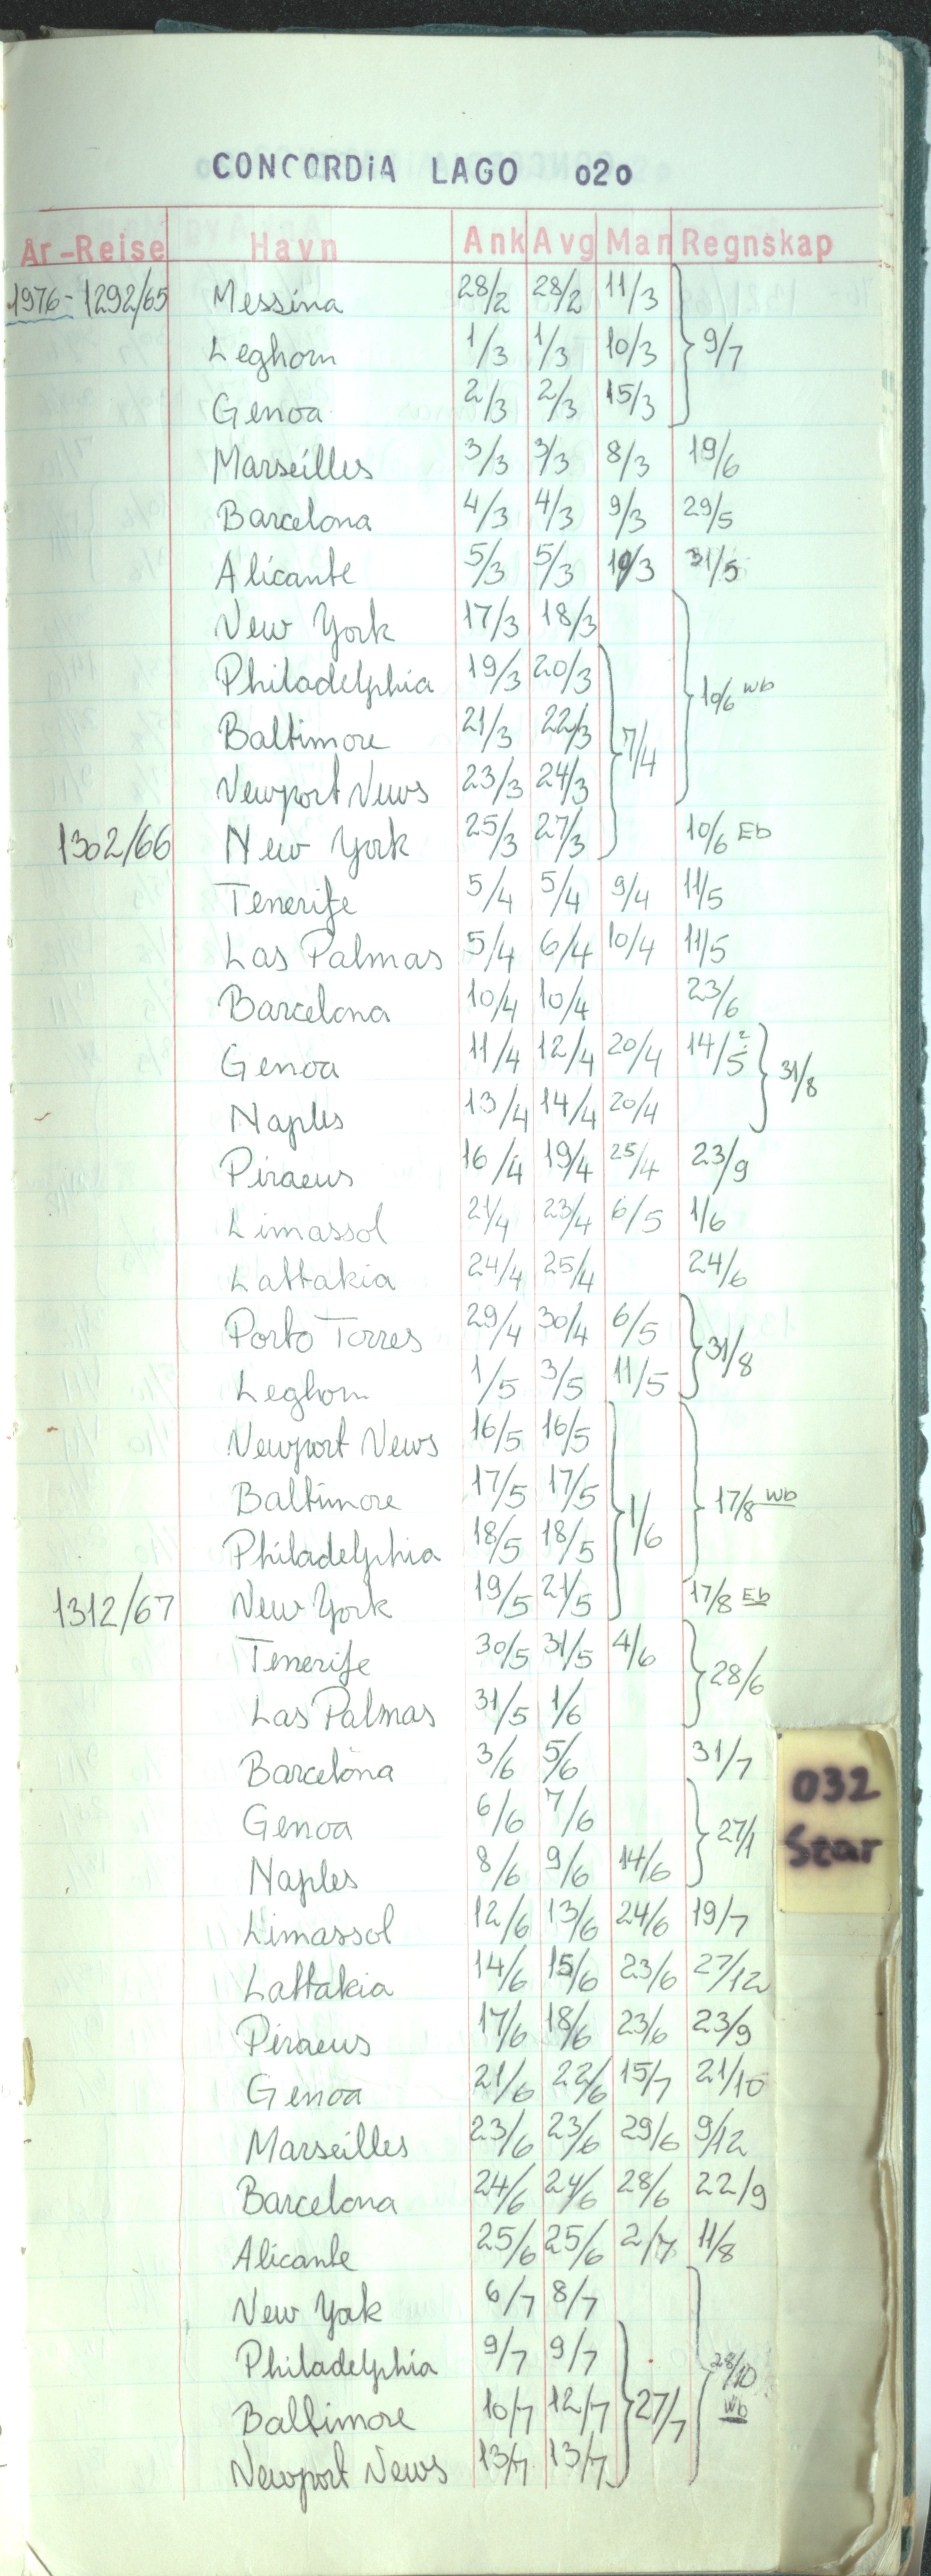 CONCORDIA LAGO 020
År-Reise Havn Ank Avg Man Regnskap
1976- 1292/65 Messina 28/2 28/2 11/3
Leghorn 1/3 1/3 10/3 9/7
Genoa 2/3 2/3 15/3
Marseilles 3/3 3/3 8/3 19/6
Barcelona 4/3 4/3 9/3 29/5
Alicante 5/3 5/3 10/3 31/5
New York 17/3 18/3
Philadelphia 19/3 20/3 10/6 wb
Baltimore 21/3 22/3 7/4
Newport News 23/3 24/3
1302/66 New York 25/3 27/3 10/6 Eb
Tenerife 5/4 5/4 9/4 11/5
Las Palmas 5/4 6/4 10/4 11/5
Barcelona 10/4 10/4 23/6
Genoa 11/4 12/4 20/4 14/5 31/8
Naples 13/4 14/4 20/4
Piraeus 16/4 19/4 25/4 23/9
Limassol 21/4 23/4 6/5 1/6
Lattakia 24/4 25/4 24/6
Porto Torres 29/4 30/4 6/5 31/8
Leghorn 1/5 3/5 11/5
Newport News 16/5 16/5
Baltimore 17/5 17/5 1/6 17/8 wb
Philadelphia 18/5 18/5
1312/67 New York 19/5 21/5 17/8 Eb
Tenerife 30/5 31/5 4/6 28/6
Las Palmas 31/5 1/6
Barcelona 3/6 5/6 31/7
Genoa 6/6 7/6 27/1
Naples 8/6 9/6 14/6
Limassol 12/6 13/6 24/6 19/7
Lattakia 14/6 15/6 23/6 27/12
Piraeus 17/6 18/6 23/6 23/9
Genoa 21/6 22/6 15/7 21/10
Marseilles 23/6 23/6 29/6 9/12
Barcelona 24/6 24/6 28/6 22/9
Alicante 25/6 25/6 2/7 11/8
New York 6/7 8/7
Philadelphia 9/7 9/7 28/10
Baltimore 10/7 12/7 27/7 wb
Newport News 13/7 13/7
032
Star